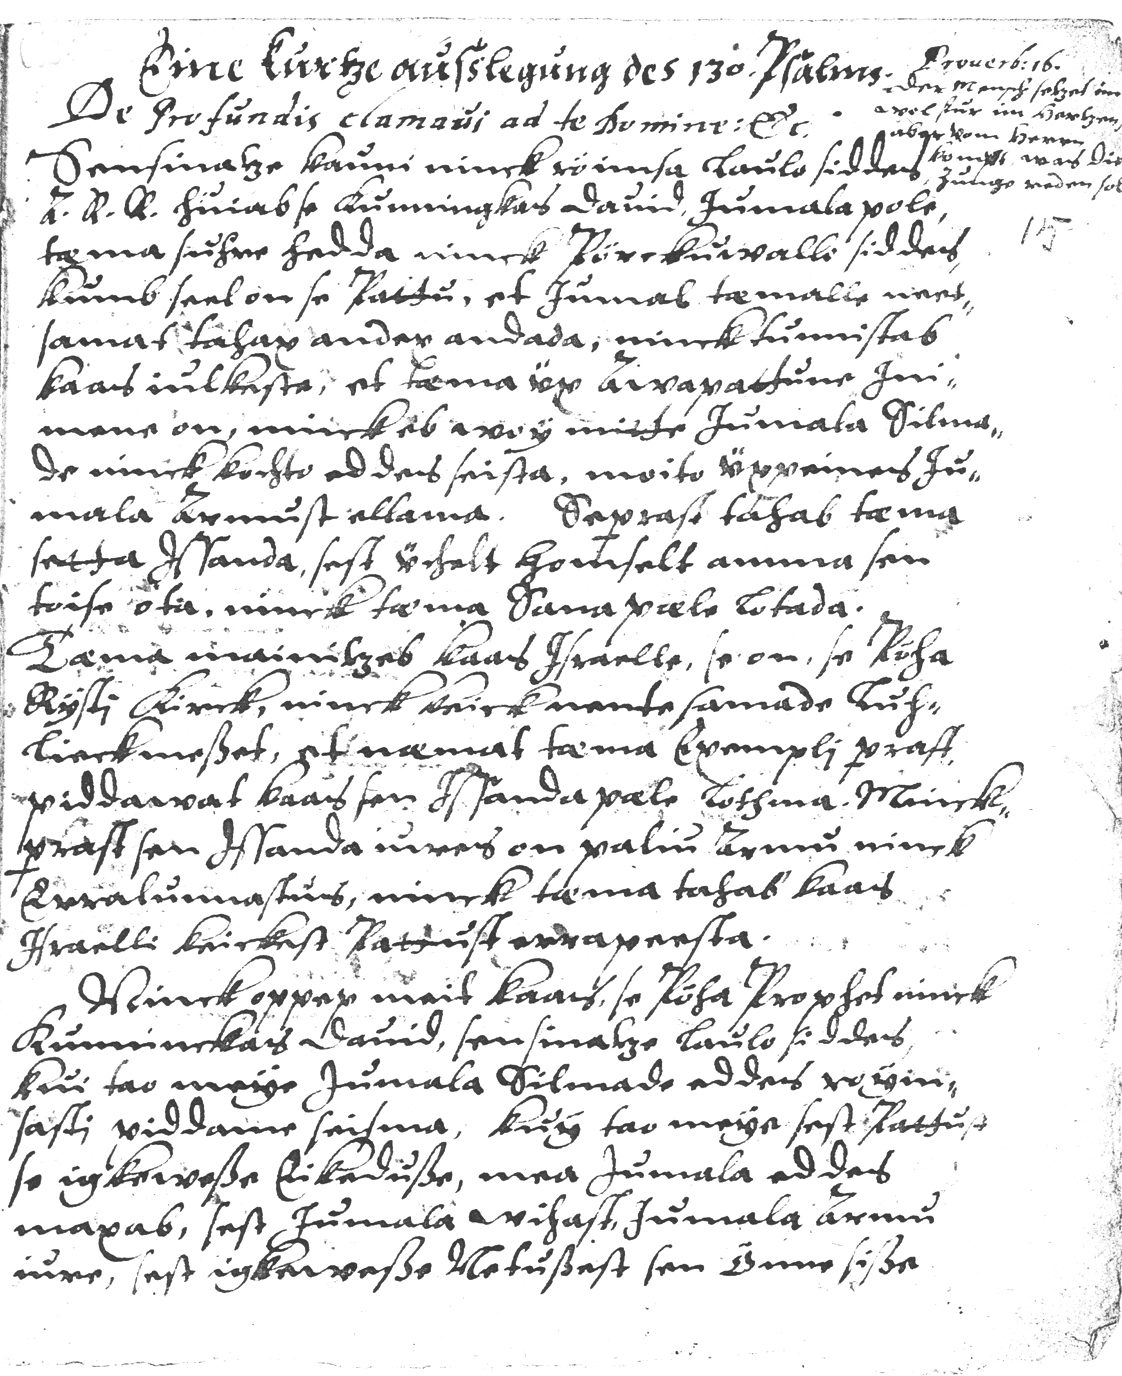 Eine kurtze ausslegung des 130. Psalms.
De Profundis clamavi ad te Domine: &c.
Proverb: 16.
Der Mensch setzet im
wol fur im Hertzen,
aber vom Herrn
kompt, was die
Zunge reden sol
15
Sensinatze kauni ninck röimsa Laulo siddes,
A. R. R. hüiab se Kunningkas David, Jumala pole,
tæma suhre hedda ninck Pörckuwallo siddes,
kumb seel on se Pattu, et Jumal tæmalle neet-
samat tahax andex andada, ninck tunnistab
kaas iulkeste, et tæma üx Awapattune Ini-
mene on, ninck eb woy mitte Jumala Silma-
de ninck kochto eddes seista, moito üxpeines Ju-
mala Armust ellama. Seprast tahab tæma
setta Issanda, sest üchelt homselt amma sen
toise öta, ninck tæma Sana pæle Lotada.
Tæma mainitzeb kaas Israelle, se on, se Pöha
Risti Kirck, ninck keick nente samade Luh-
lieckmeßet, et næmat tæma Exempli prast,
piddawat kaas sen Issanda pæle lothma. Ninck-
prast sen Issanda iures on paliu Armu ninck
Erralunnastus, ninck tæma tahab kaas
Israelli keickest Pattust errapeesta.
Ninck oppex meit kaas, se Pöha Prophet ninck
Kunninckas David, sensinatze Laulo siddes,
kui tao meye Jumala Silmade eddes röym-
sasti piddame seisma, kuy tao meye sest Pattust
se igkeweße Eikeduße, mea Jumala eddes
maxab, sest Jumala wihast, Jumala Armu
iure, sest igkeweße Netußest sen Önne siße